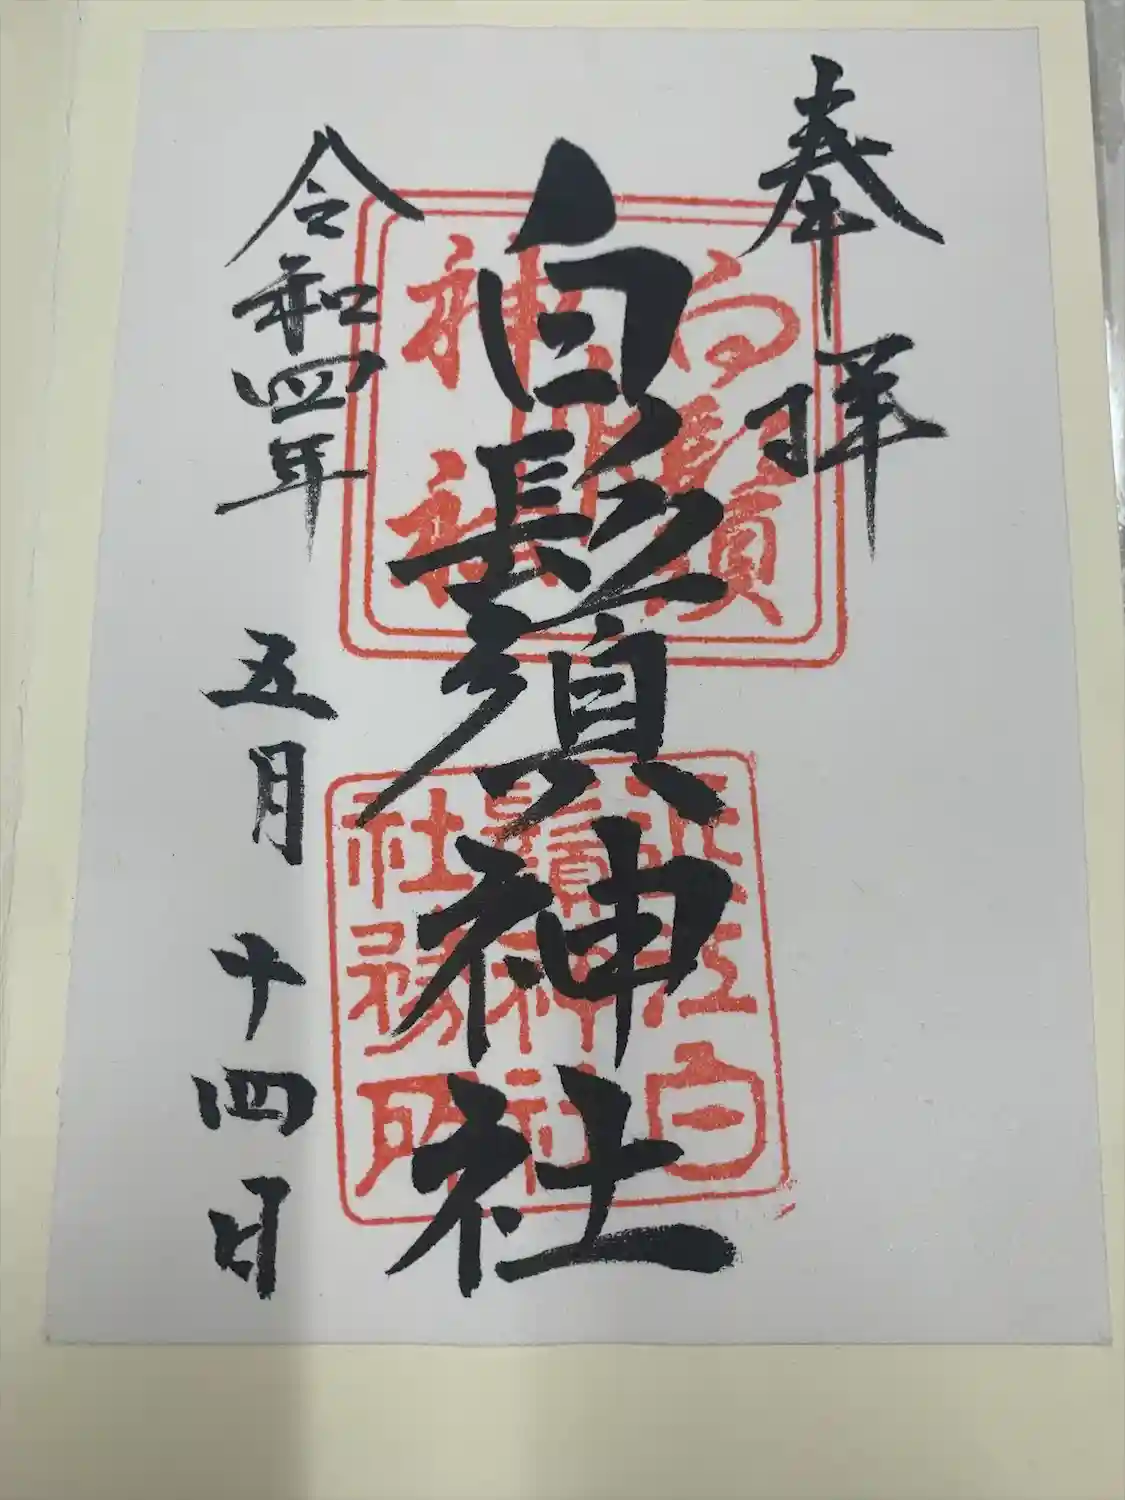 奉拝
白鬚神社
令和四年五月十四日
白鬚
神社
近江白
鬚神社
社務所